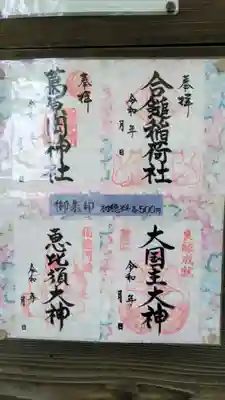 奉拝
合龍稲荷社
令和 年
月 日
奉拝
葛原岡神社
令和 年
月 日
御朱印 初穂料各500円
良縁成就
大国主大神
令和 年
月 日
恵比須大神
令和 年
月 日